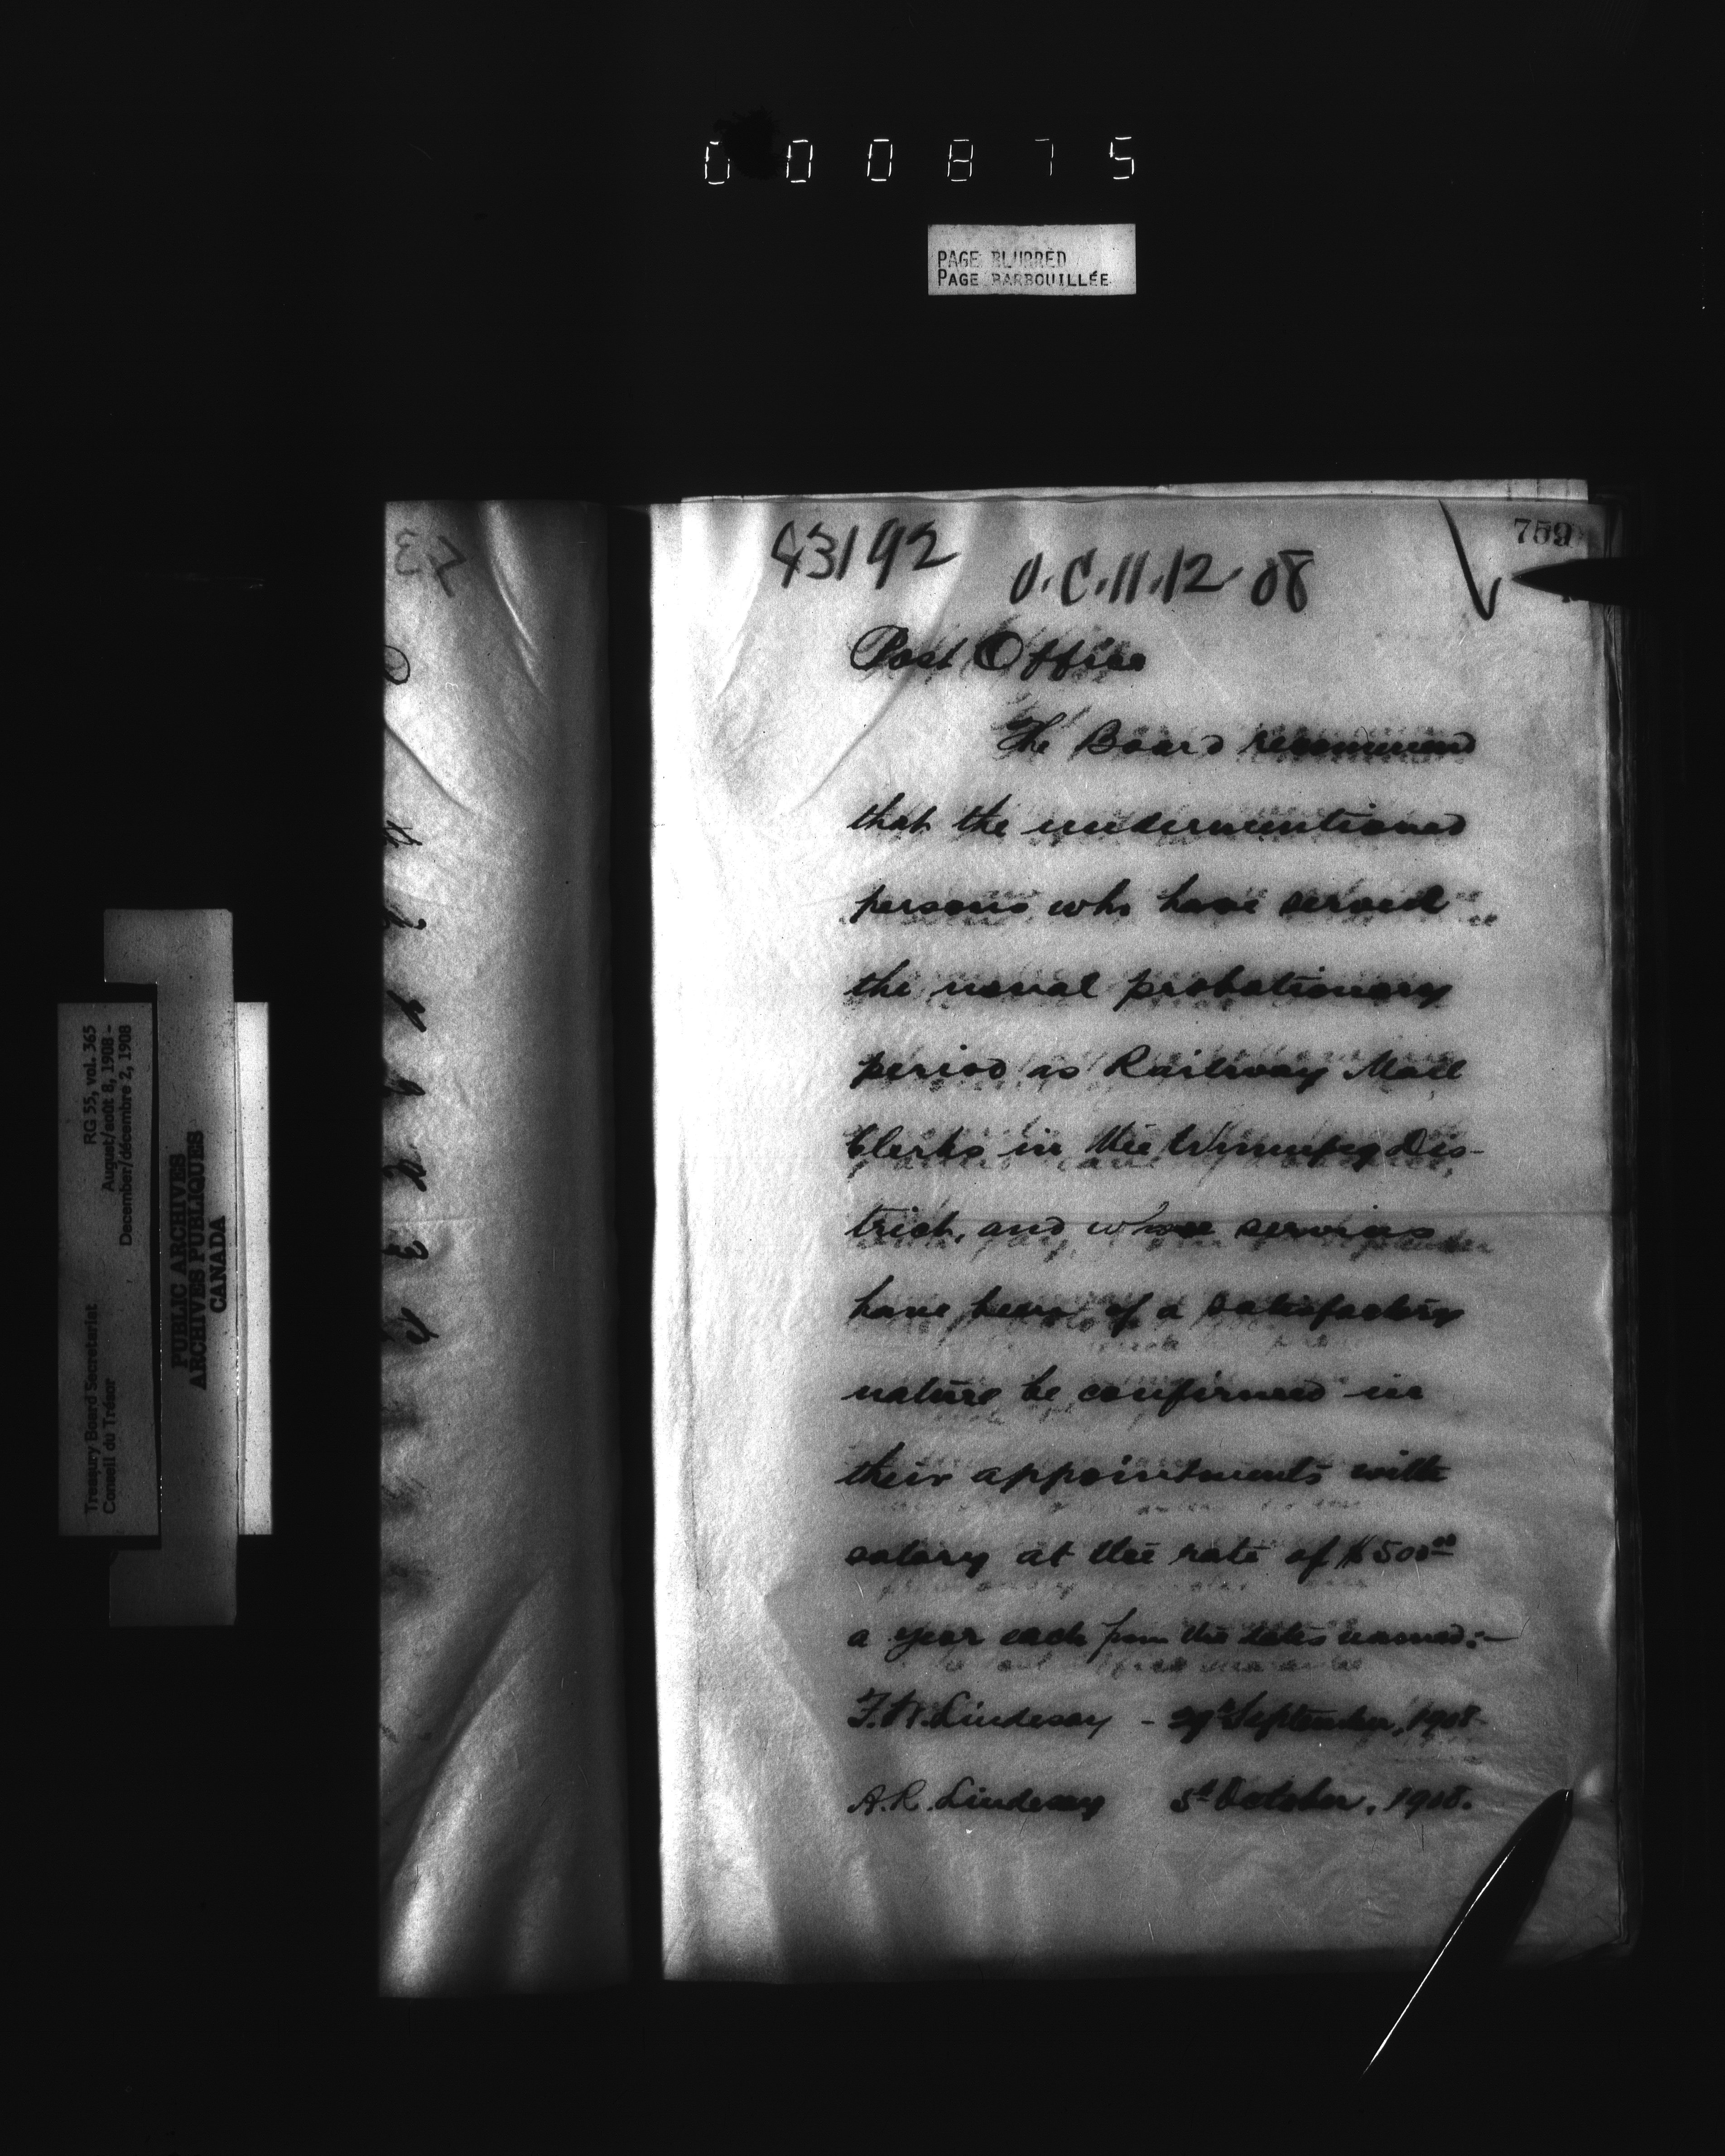 000875
PAGE BLURRED
PAGE BARBOUILLÉE
759
43192
O.C. 11.12 08
Post Office
The Board recommend
that the undermentioned
persons who have served
the usual probationary
period as Railway Mail
Clerks in the Winnipeg Dis-
trict, and whose services
have been of a satisfactory
nature be confirmed in
their appointments with
salary at the rate of $500.00
a year each from the dates named:-
F.W. Lindesay - September, 1908
A.R. Lindesay October, 1908.
Treasury Board Secretariat
Conseil du Trésor
RG 55, vol. 365
August/août 8, 1908 -
December/décembre 2, 1908
PUBLIC ARCHIVES
ARCHIVES PUBLIQUES
CANADA